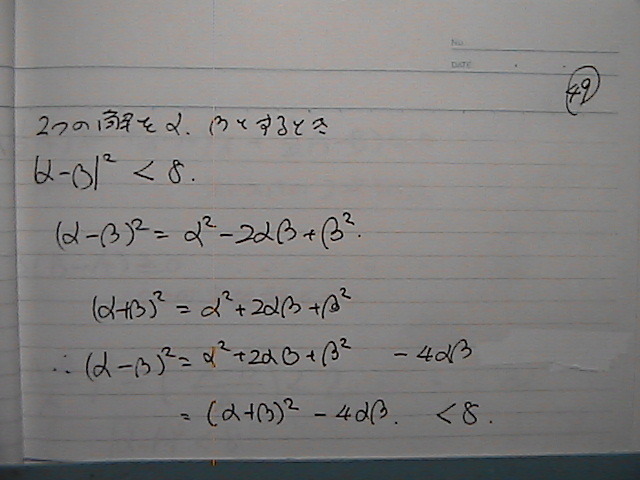 No
DATE
49
2つの解を α. βとするとき
|α-β|² < 8.
(α-β)² = α² - 2αβ + β².
(α+β)² = α² + 2αβ + β²
∴ (α-β)² = α² + 2αβ + β² - 4αβ
= (α+β)² - 4αβ. < 8.